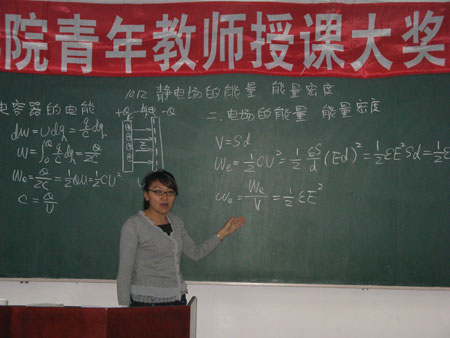 院青年教师授课大奖
10.12 静电场的能量 能量密度
电容器的电能
+Q -Q
dw=Udq=q/c dq.
W=∫₀^Q q/c dq=Q²/2C
We=Q²/2C=1/2QU=1/2CU²
C=Q/U
二.电场的能量 能量密度
V=Sd
We=1/2CU²=1/2 εS/d (Ed)²=1/2εE²Sd=1/2ε
we=We/V=1/2εE²